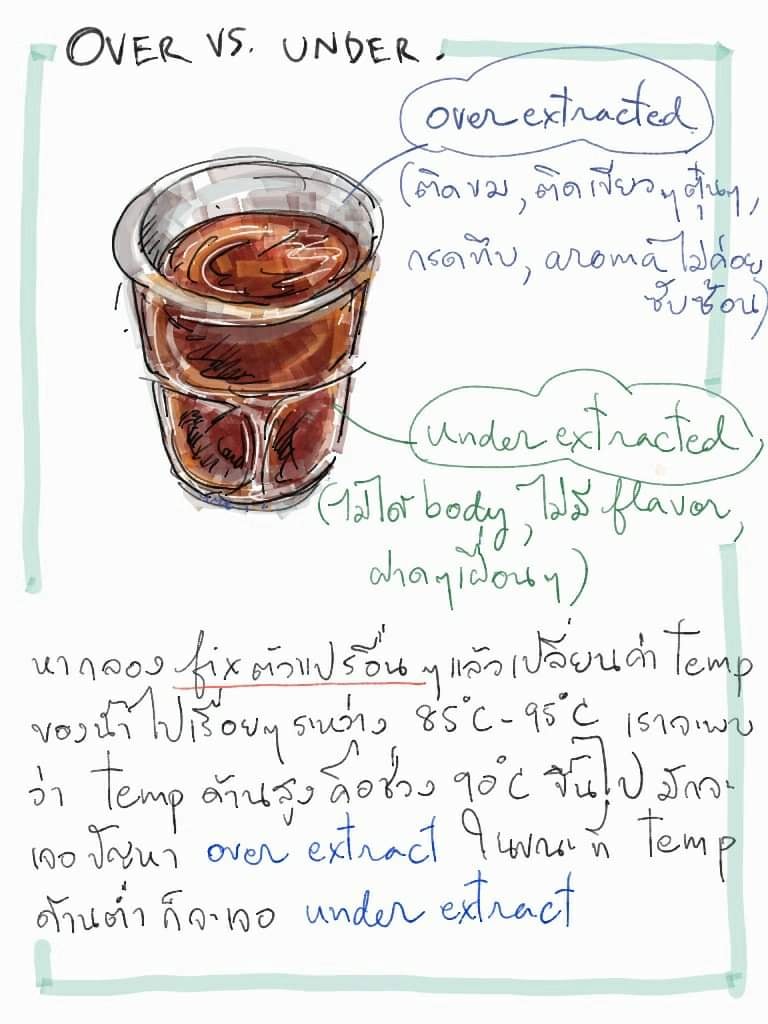 OVER VS. UNDER.
over extracted
(ติดขม, ติดเขียวๆ ตุ่นๆ,
กรดทึบ, aroma ไม่ค่อย
ซับซ้อน)
under extracted
(ไม่ได้ body, ไม่มี flavor,
ฝาดๆ เฝื่อนๆ)
หากลอง fix ตัวแปรอื่นๆ แล้วเปลี่ยนค่า Temp
ของน้ำ ไปเรื่อยๆ ระหว่าง 85°C - 95°C เราจะพบ
ว่า Temp ด้านสูง คือช่วง 90°C ขึ้นไป มักจะ
เจอปัญหา over extract ในขณะที่ Temp
ด้านต่ำ ก็จะเจอ under extract